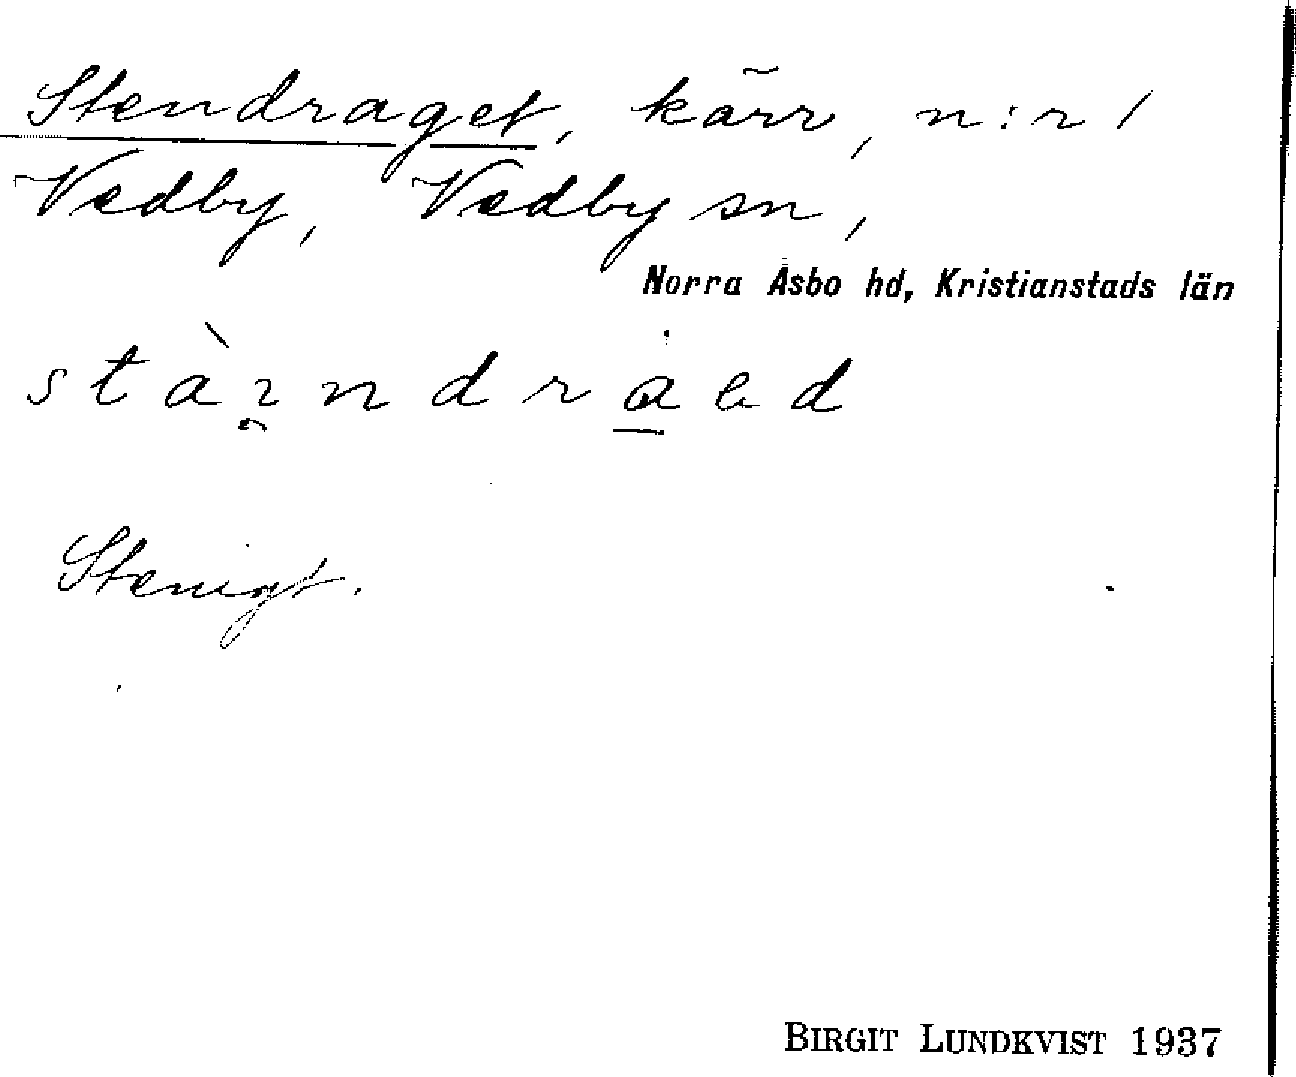 Stendraget, kärr, n:r 1
Vedby, Vedby sn,
Norra Åsbo hd, Kristianstads län
Stenigt.
BIRGIT LUNDKVIST 1937